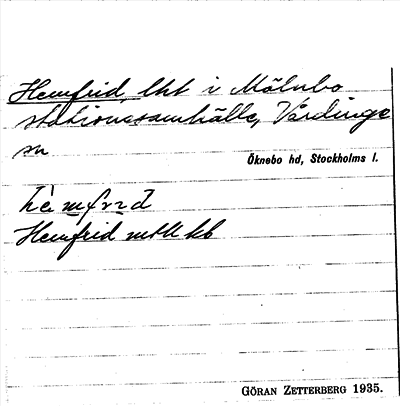 Hemfrid, lht i Mölnbo
stationssamhälle, Vårdinge
sn
Öknebo hd, Stockholms l.
Hemfrid mtlk kb
GÖRAN ZETTERBERG 1935.